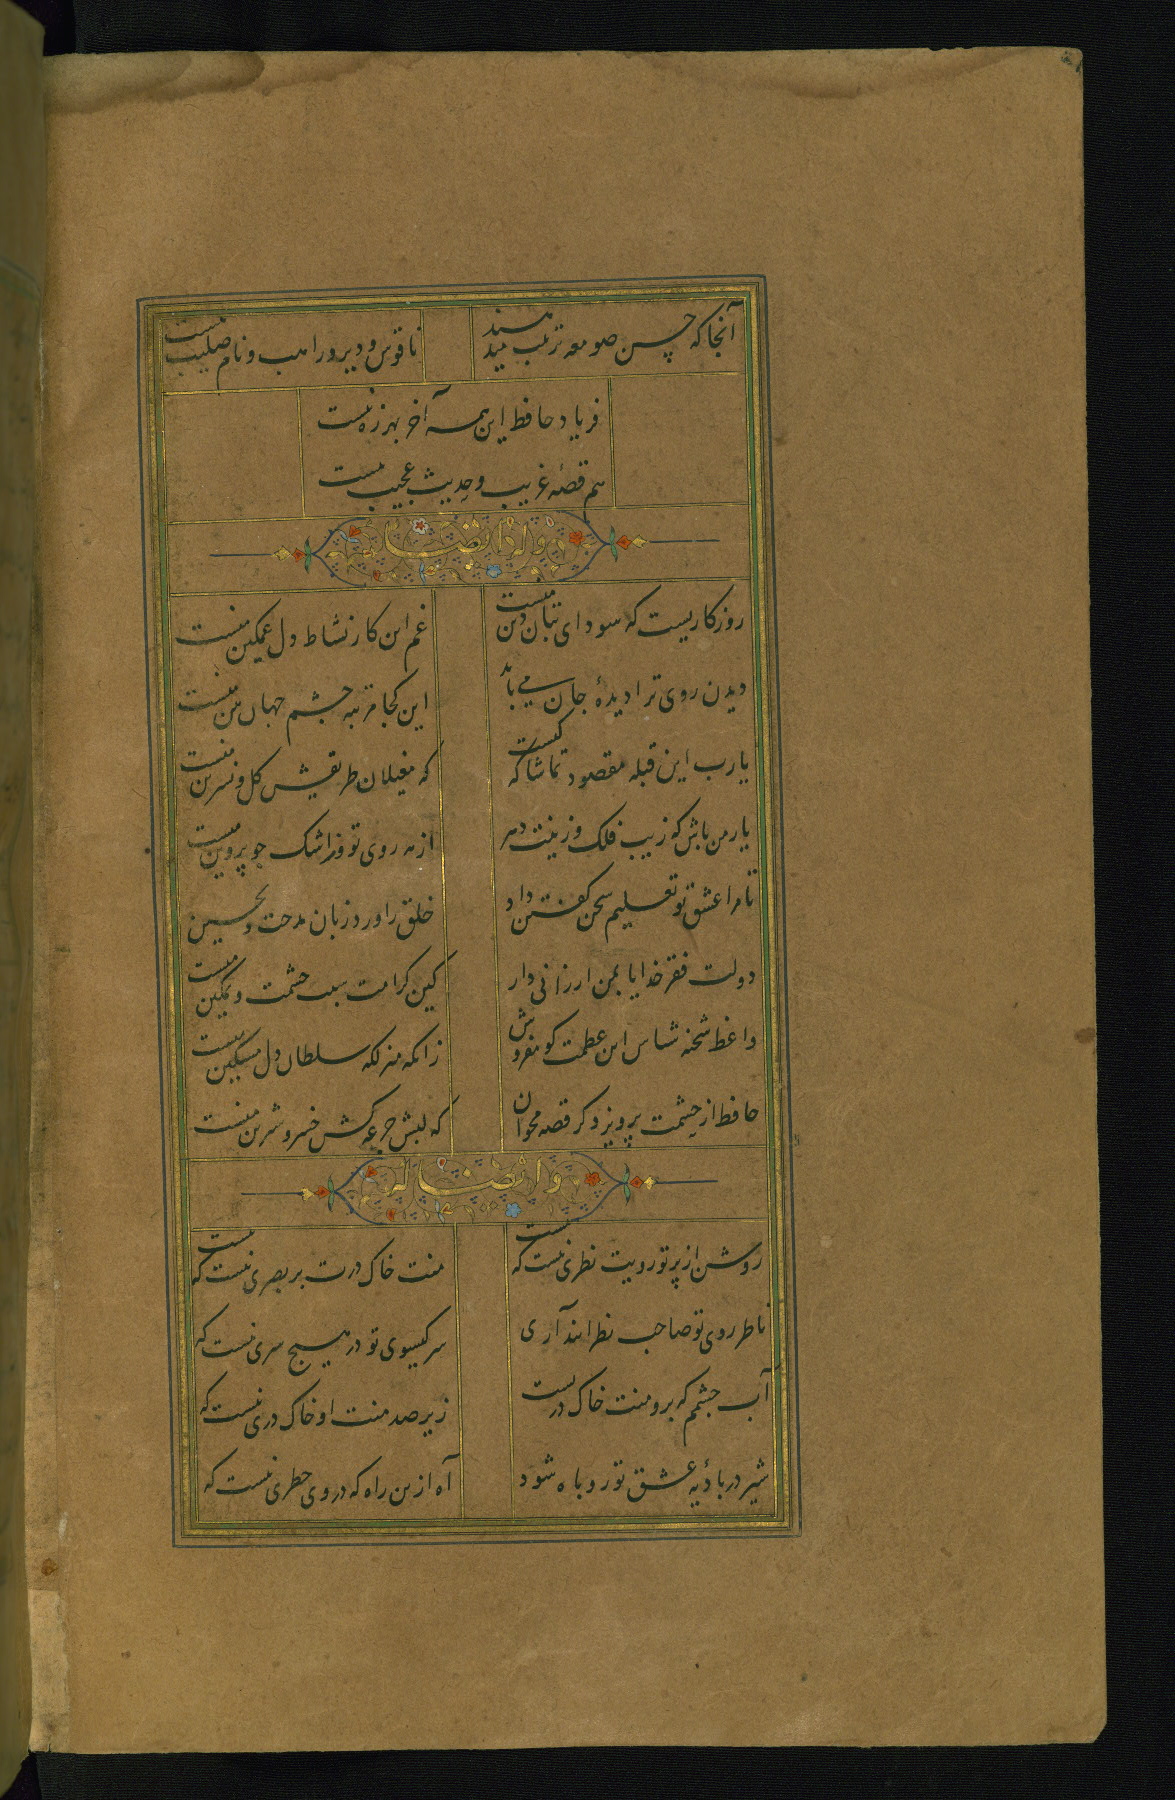 آنجا که حسن صومعه ترتیب میدهند
ناقوس و دیر و راهب و نام صلیب نیست
فریاد حافظ این همه آخر بهرزه نیست
هم قصهٔ غریب و حدیث عجیب هست
وله ایضا
روزکاریست که سودای بتان دین منست
غم این کار نشاط دل غمکین منست
دیدن روی ترا دیدهٔ جان می باید
این کجا مرتبه چشم جهان بین منست
یارب این قبله مقصود تماشاکه کیست
که مغیلان طریقش کل و نسرین منست
یار من باش که زیب فلک و زینت دهر
از مه روی تو و اشک چو پروین منست
تا مرا عشق تو تعلیم سخن کفتن داد
خلق را ورد زبان مدحت و تحسین
دولت فقر خدایا بمن ارزانی دار
کین کرامت سبب حشمت و تمکین منست
واعظ شحنه شناس این عظمت کو مفروش
زانکه منزلکه سلطان دل مسکین منست
حافظ از حشمت پرویز دکر قصه مخوان
که لبش جرعه کش خسرو شیرین منست
وایضا له
روشن از پرتو رویت نظری نیست که نیست
منت خاک درت بر بصری نیست که نیست
ناظر روی تو صاحب نظرانند آری
سر کیسوی تو در هیچ سری نیست که
آب چشمم که برو منت خاک در تست
زیر صد منت او خاک دری نیست که
شیر در بادیه عشق تو روباه شود
آه ازین راه که در وی خطری نیست که